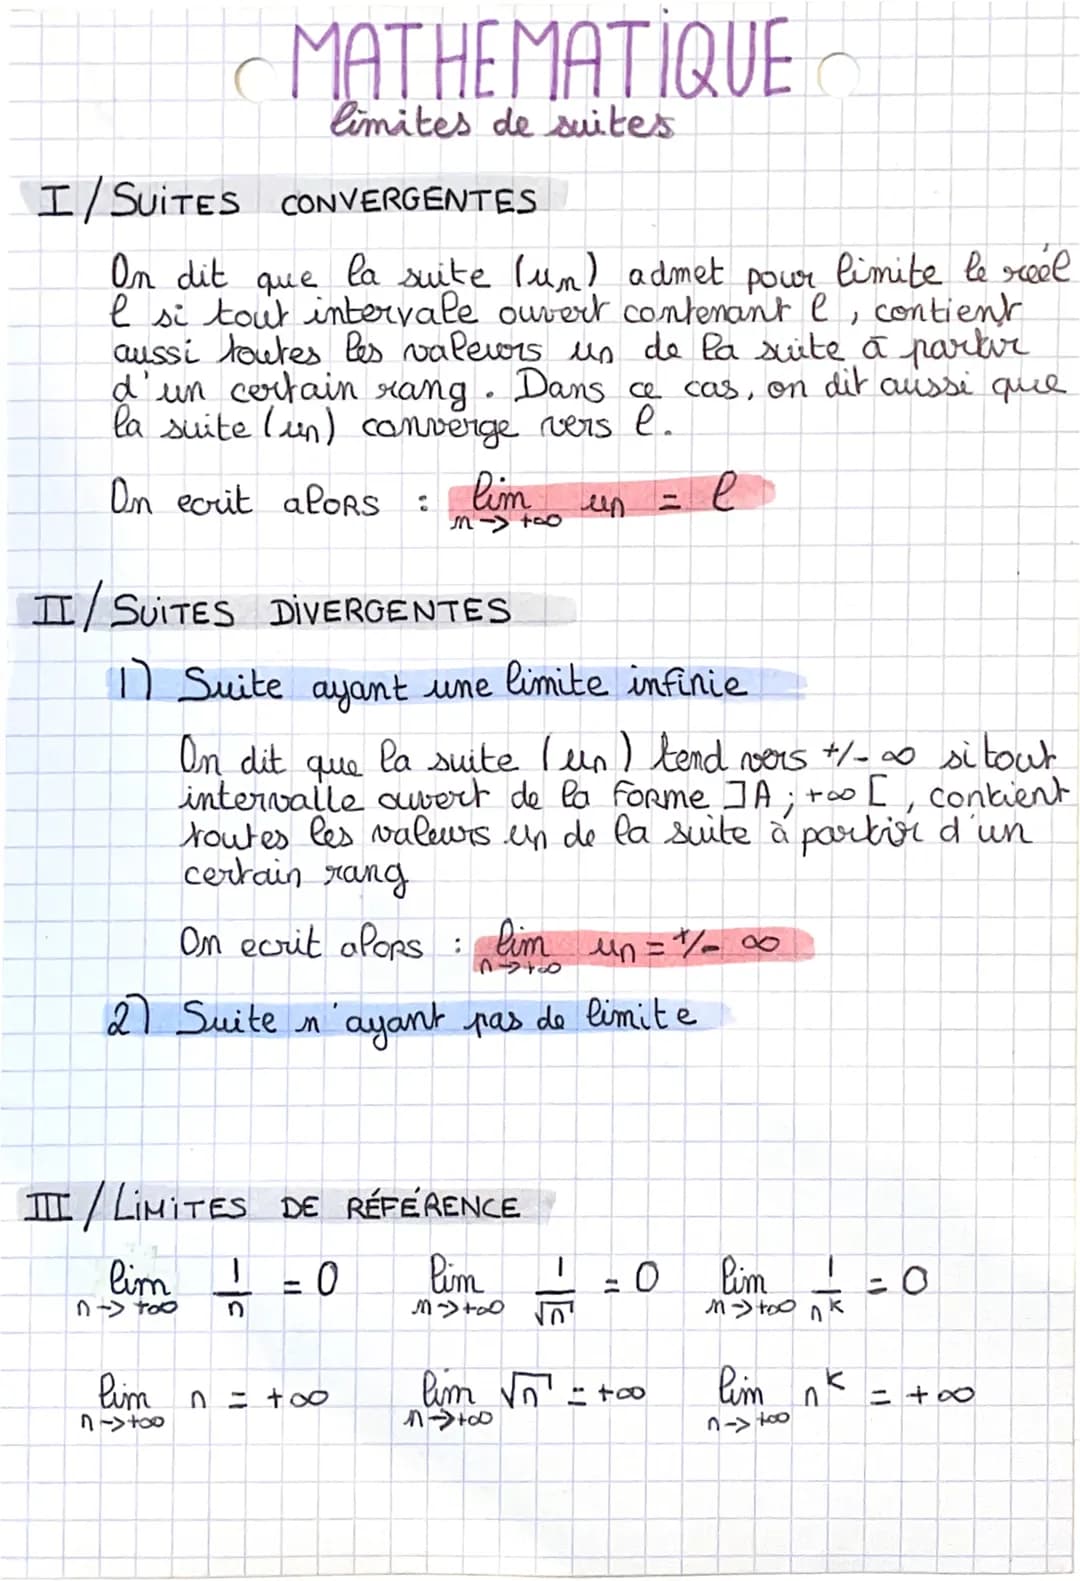 MATHEMATIQUE
limites de suites
I/ SUITES CONVERGENTES
On dit que la suite (un) admet pour limite le réel
l si tout intervale ouvert contenant l, contient
aussi toutes les valeurs un de la suite à partir
d'un certain rang. Dans ce cas, on dit aussi que
la suite (un) converge vers l.
On ecrit alors : lim un = l
n -> +∞
II/ SUITES DIVERGENTES
1) Suite ayant une limite infinie
On dit que la suite (un) tend vers +/- ∞ si tout
intervalle ouvert de la forme ]A ; +∞ [, contient
toutes les valeurs un de la suite à partir d'un
certain rang
On ecrit alors : lim un = +/- ∞
n -> +∞
2) Suite n'ayant pas de limite
III/ LIMITES DE RÉFÉRENCE
lim 1/n = 0 lim 1/√n = 0 lim 1/n^k = 0
n -> +∞ n -> +∞ n -> +∞
lim n = +∞ lim √n = +∞ lim n^k = +∞
n -> +∞ n -> +∞ n -> +∞